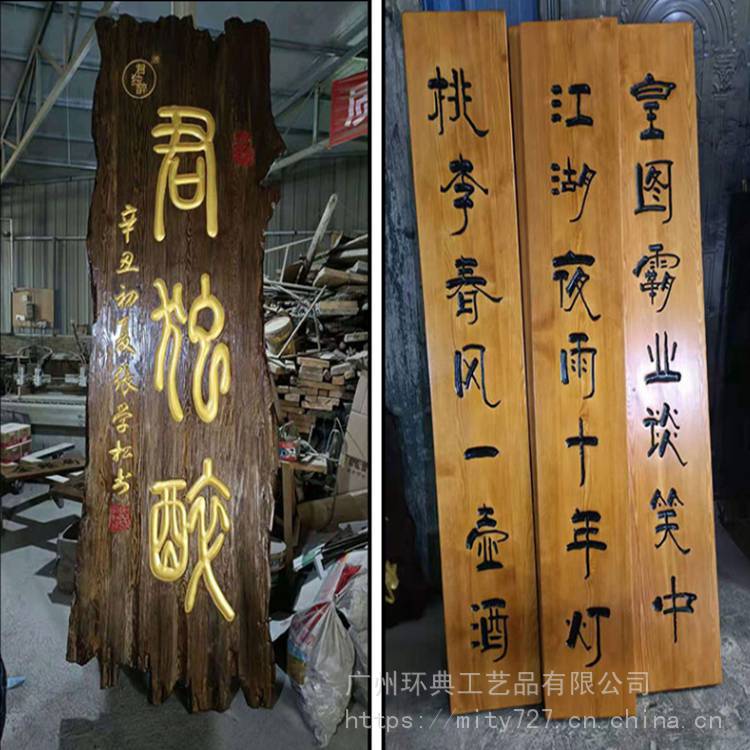 君独醉
辛丑初夏张学松书
桃李春风一壶酒
江湖夜雨十年灯
皇图霸业谈笑中
广州环典工艺品有限公司
https://mity727.cn.china.cn